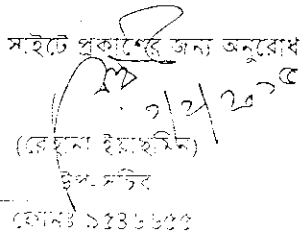 সাইটে প্রকাশের জন্য অনুরোধ
২/২/২০১৫
(রেহানা ইয়াছমিন)
উপ-সচিব
ফোনঃ ৯৫৪৬৬৫৫